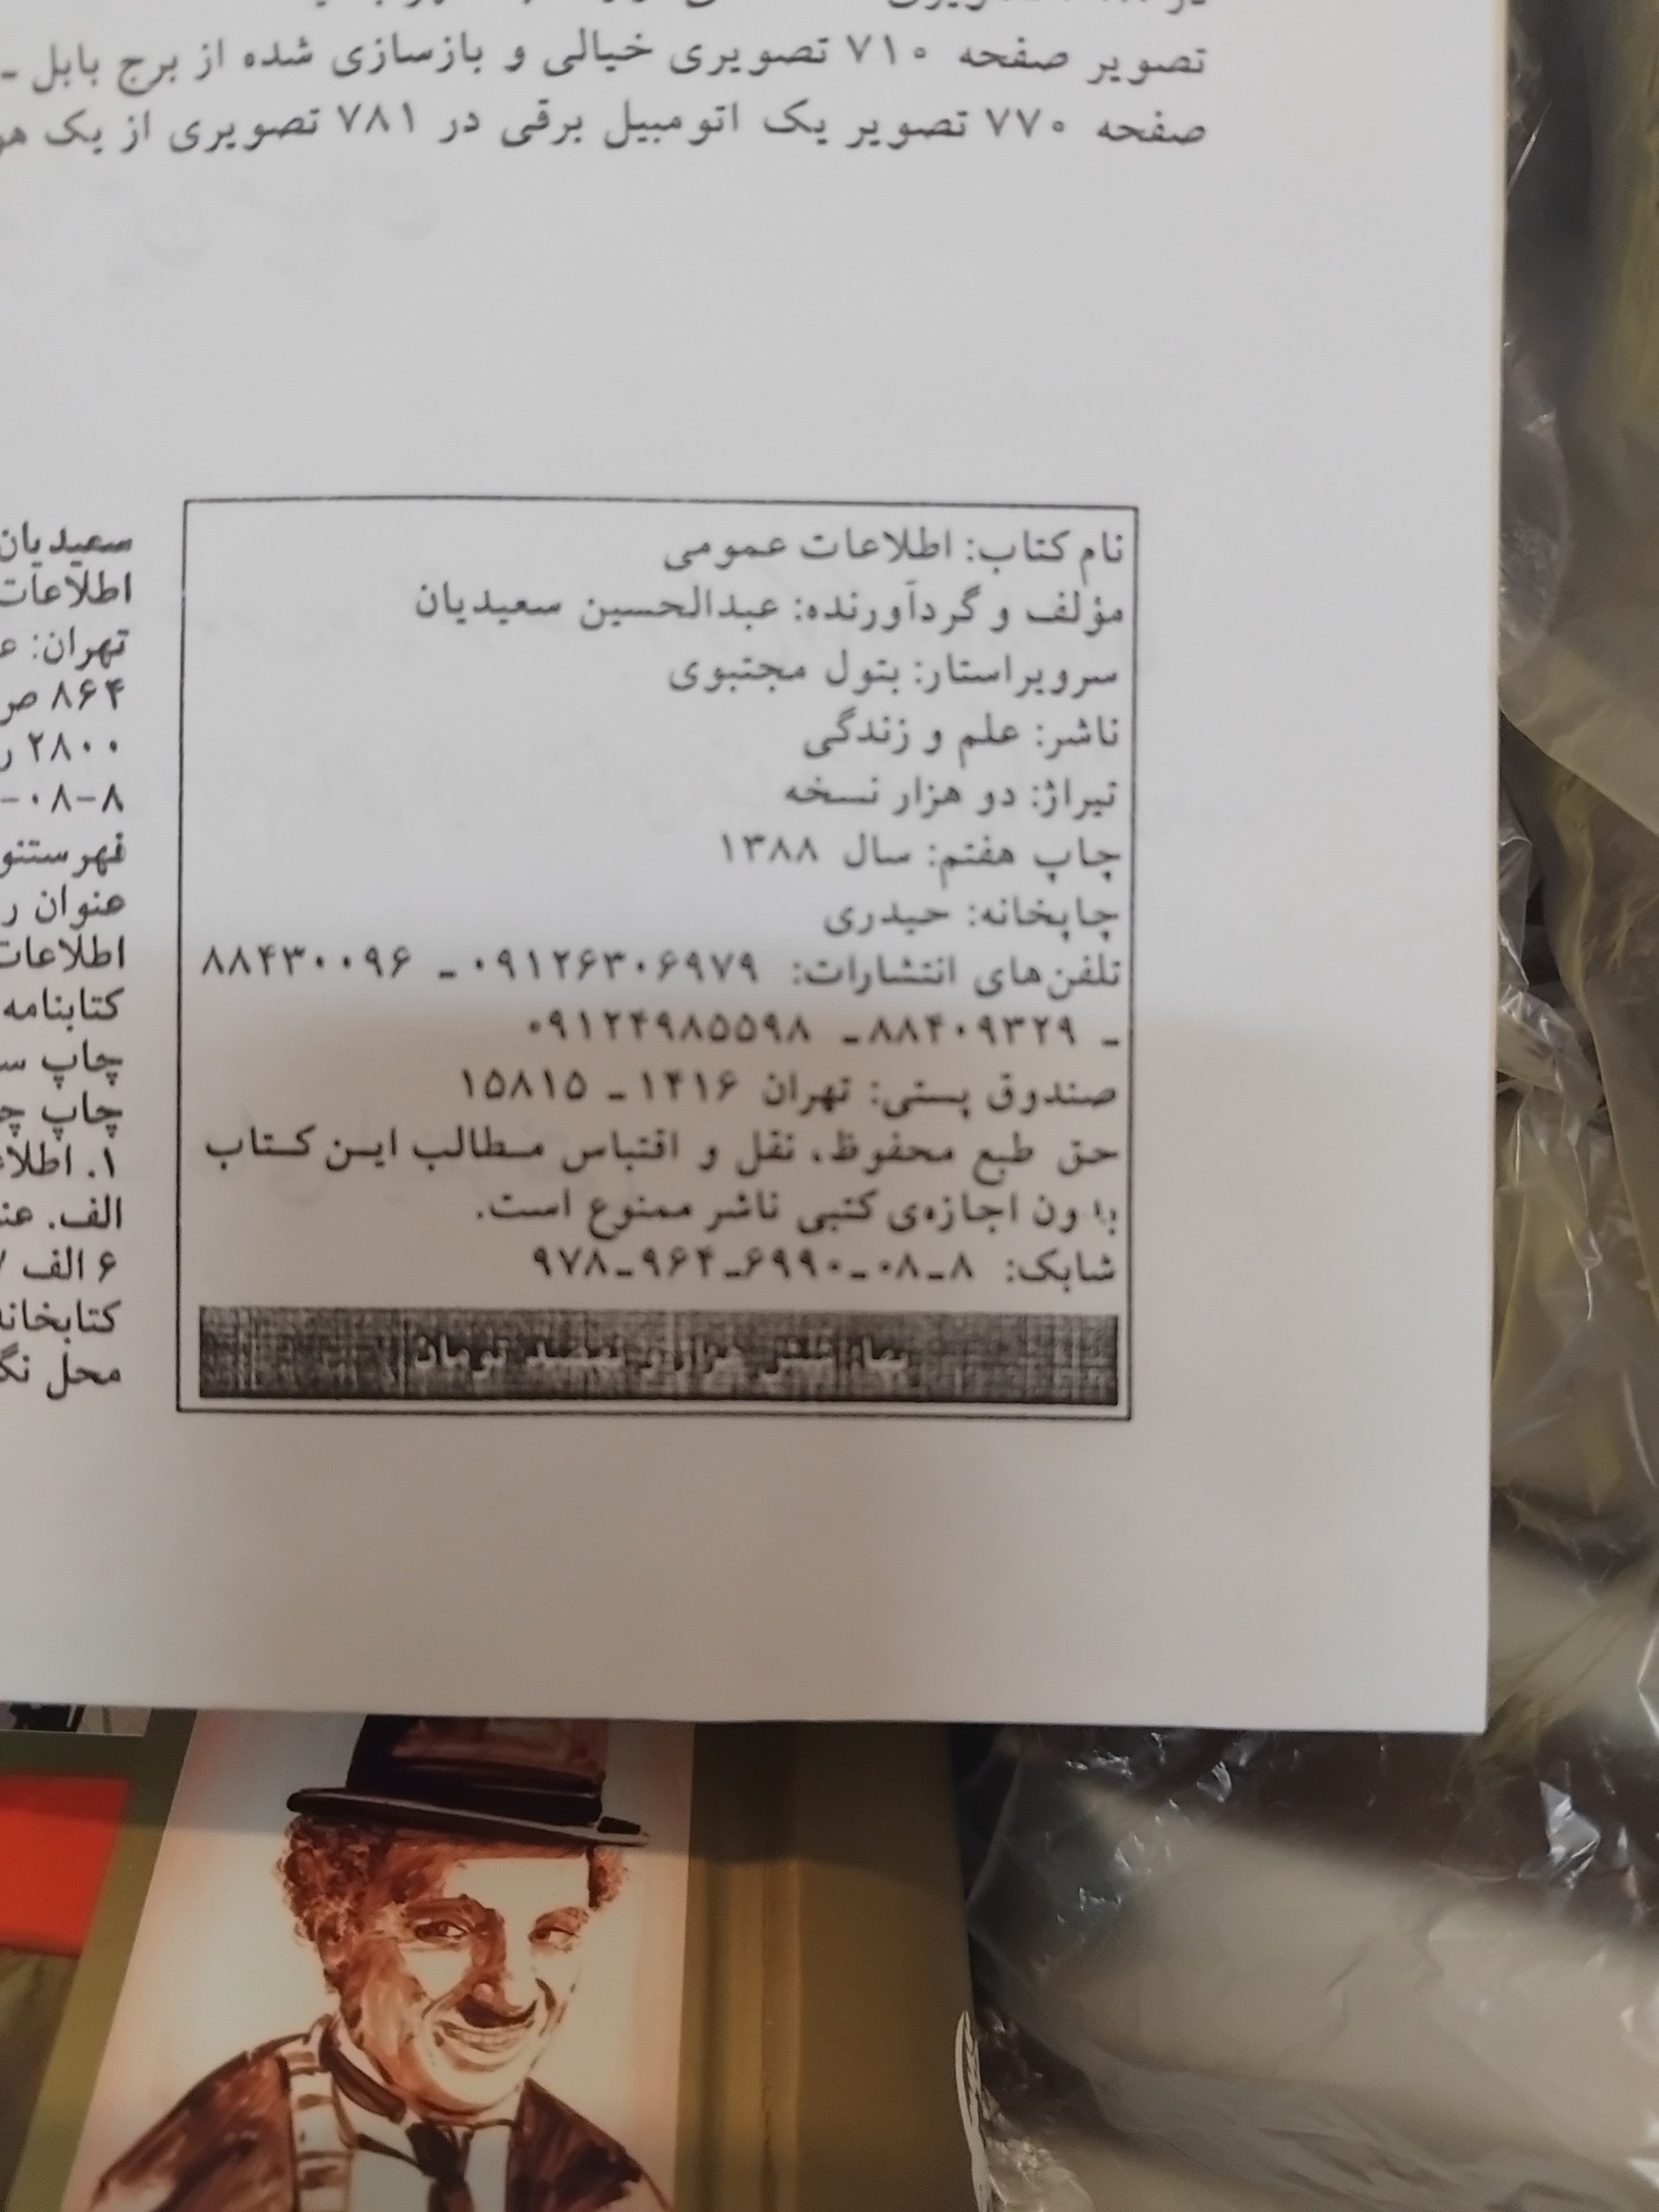 تصویر صفحه ۷۱۰ تصویری خیالی و بازسازی شده از برج بابل -
صفحه ۷۷۰ تصویر یک اتومبیل برقی در ۷۸۱ تصویری از یک
نام کتاب: اطلاعات عمومی
مؤلف و گردآورنده: عبدالحسین سعیدیان
سرویراستار: بتول مجتبوی
ناشر: علم و زندگی
تیراژ: دو هزار نسخه
چاپ هفتم: سال ۱۳۸۸
چاپخانه: حیدری
تلفن‌های انتشارات: ۰۹۱۲۶۳۰۶۹۷۹ - ۸۸۴۳۰۰۹۶
- ۸۸۴۰۹۳۲۹ - ۰۹۱۲۴۹۸۵۵۹۸
صندوق پستی: تهران ۱۴۱۶ - ۱۵۸۱۵
حق طبع محفوظ، نقل و اقتباس مطالب این کتاب
بدون اجازه‌ی کتبی ناشر ممنوع است.
شابک: ۸-۰۸-۶۹۹۰-۹۶۴-۹۷۸
سعیدیان
اطلاعات
تهران:
۸۶۴ ص
۲۸۰۰
۸-۰۸-
عنوان
اطلاعات
کتابنامه
چاپ
چاپ
۱.
الف.
۶ الف
محل